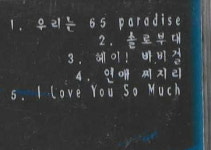 1. 우리는 65 paradise
2. 솔로부대
3. 헤이! 바비걸
4. 연애 찌지리
5. I Love You So Much